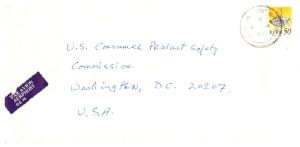 U.S. Consumer Product Safety
Commission.
Washington, D.C. 20207.
U.S.A.
PAR AVION